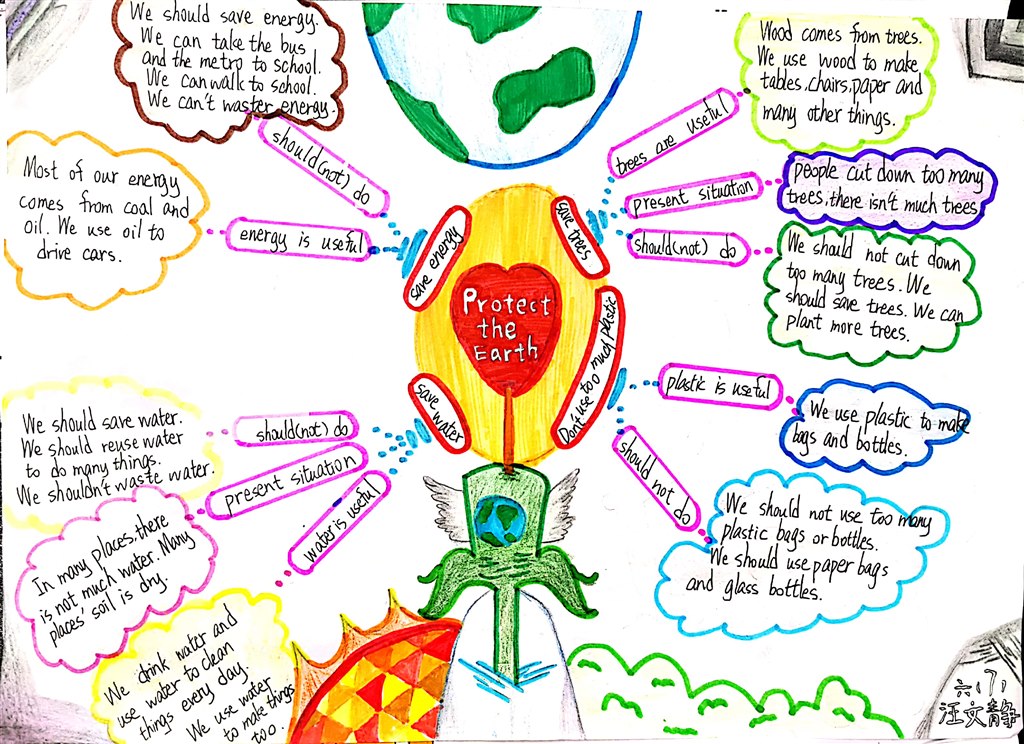 We should save energy.
We can take the bus
and the metro to school.
We can walk to school.
We can't waster energy.
should(not) do
Most of our energy
comes from coal and
oil. We use oil to
drive cars.
energy is useful
save energy
Wood comes from trees.
We use wood to make
tables,chairs,paper and
many other things.
trees are useful
people cut down too many
trees,there isn't much trees
present situation
We should not cut down
too many trees. We
should save trees. We can
plant more trees.
should(not) do
save trees
Protect
the
Earth
Don't use too much plastic
plastic is useful
We use plastic to make
bags and bottles.
should not do
We should not use too many
plastic bags or bottles.
We should use paper bags
and glass bottles.
save water
should(not) do
We should save water.
We should reuse water
to do many things.
We shouldn't waste water.
present situation
In many places,there
is not much water. Many
places soil is dry.
water is useful
We drink water and
use water to clean
things every day.
We use water
to make things
too.
六(7)
汪文静